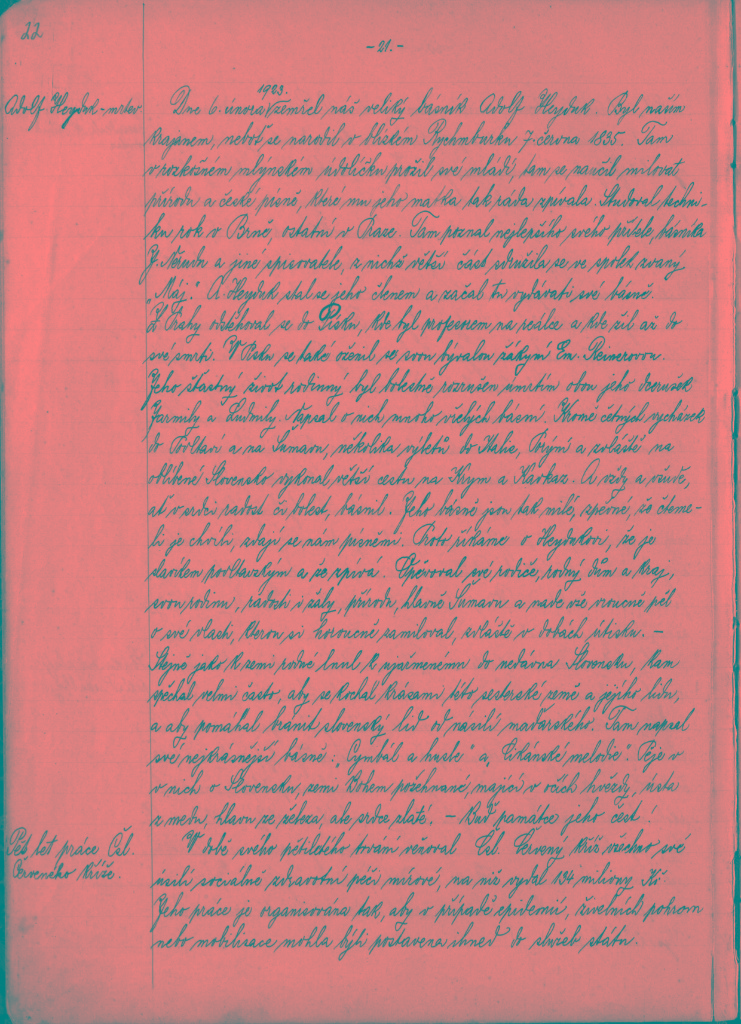 22
- 21. -
Adolf Heyduk - mrtev
1923.
Dne 6. února zemřel náš veliký básník Adolf Heyduk. Byl naším
krajanem, neboť se narodil v blízkém Rychmburku 7. června 1835. Tam
v rozkošném mlýnském údolíčku prožil své mládí, tam se naučil milovat
přírodu a české písně, které mu jeho matka tak ráda zpívala. Studoval techni-
ku rok v Brně, ostatní v Praze. Tam poznal nejlepšího svého přítele, básníka
J. Nerudu a jiné spisovatele, z nichž větší část sdružila se ve spolek zvaný
„Máj." A Heyduk stal se jeho členem a začal tu vydávati své básně.
Z Prahy odstěhoval se do Písku, kde byl profesorem na reálce a kde žil až do
své smrti. V Písku se také oženil se svou bývalou žákyní Em. Reinerovou.
Jeho šťastný život rodinný byl bolestně rozrušen úmrtím obou jeho dcerušek
Jarmily a Ludmily. Napsal o nich mnoho vřelých básní. Kromě četných vycházek
do Povltaví a na Šumavu, několika výletů do Italie, a zvláště na
oblíbené Slovensko vykonal větší cestu na Krym a Kavkaz. A vždy a všude,
ať v srdci radost či bolest, básnil. Jeho básně jsou tak milé, zpěvné, že čteme-
li je chvíli, zdají se nám písněmi. Proto říkáme o Heydukovi, že je
slavíkem povltavským a že zpívá. Opěvoval své rodiče, rodný dům a kraj,
svou rodinu, radosti i žaly, přírodu, hlavně Šumavu a nade vše vroucně pěl
o své vlasti, kterou si horoucně zamiloval, zvláště v dobách útisku. -
Stejně jako k zemi rodné lnul k ujařmenému do nedávna Slovensku, kam
spěchal velmi často, aby se kochal krásami této sesterské země a jejího lidu,
a aby pomáhal bránit slovenský lid od násilí maďarského. Tam napsal
své nejkrásnější básně: „Cymbál a husle" a „Cikánské melodie". Pěje v
v nich o Slovensku, zemi Bohem požehnané, mající v očích hvězdy, ústa
z medu, hlavu ze železa, ale srdce zlaté. - Buď památce jeho čest!
Pět let práce Čsl.
Červeného kříže.
V době svého pětiletého trvání věnoval Čsl. Červený kříž všechno své
úsilí sociálně zdravotní péči mírové, na niž vydal 134 miliony Kč.
Jeho práce je organisována tak, aby v případě epidemií, živelních pohrom
nebo mobilisace mohla býti postavena ihned do služeb státu.